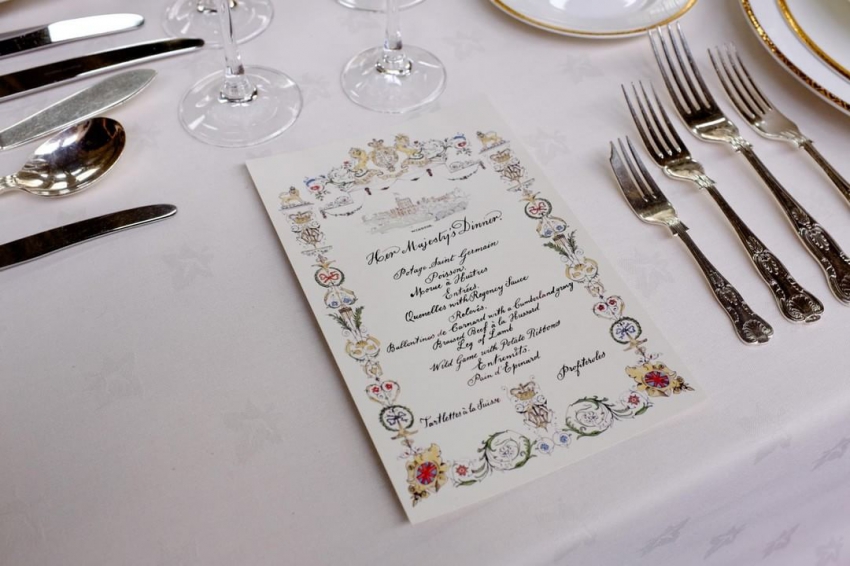 WINDSOR
Her Majesty's Dinner.
Potage Saint-Germain
Poisson.
Morue à Huîtres
Entrées.
Quenelles with Regency Sauce
Relevés.
Ballontinus de Carnard with a Cumberland gravy
Braised Beef à la Hussard
Leg of Lamb
Wild Game with Potato Ribbons
Entremêts.
Pain d'Epinard
Profiteroles
Tartlettes à la Suisse